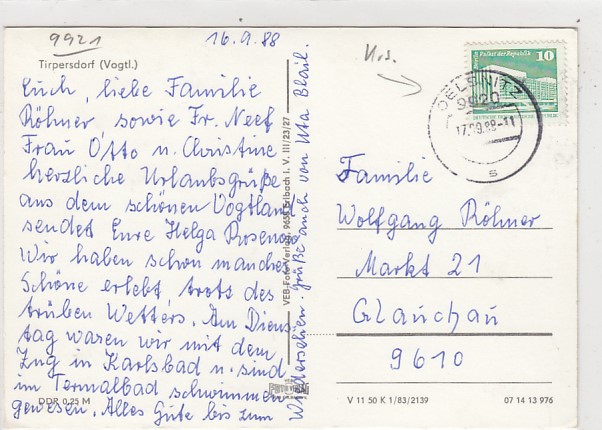 9921
16.9.88
Tirpersdorf (Vogtl.)
Euch, liebe Familie
Röhner, sowie Fr. Neef
Frau Otto u. Christine
herzliche Urlaubsgrüße
aus dem schönen Vogtland
sendet Eure Helga
Wir haben schon manches
Schöne erlebt, trotz des
trüben Wetters. Am Diens-
tag waren wir mit dem
Zug in Karlsbad u. sind
im Termalbad schwimmen
gewesen. Alles Gute bis zum
Wiedersehen. Grüße auch von Uta
DDR 0,25 M
VEB Foto-Verlag 9655 Erlbach i. V. III/23/27
Palast der Republik
10
DEUTSCHE DEMOKRATISCHE REPUBLIK
OELSNITZ
9920
17.09.88-11
s
Familie
Wolfgang Röhner
Markt 21
Glauchau
9610
V 11 50 K 1/83/2139
07 14 13 976